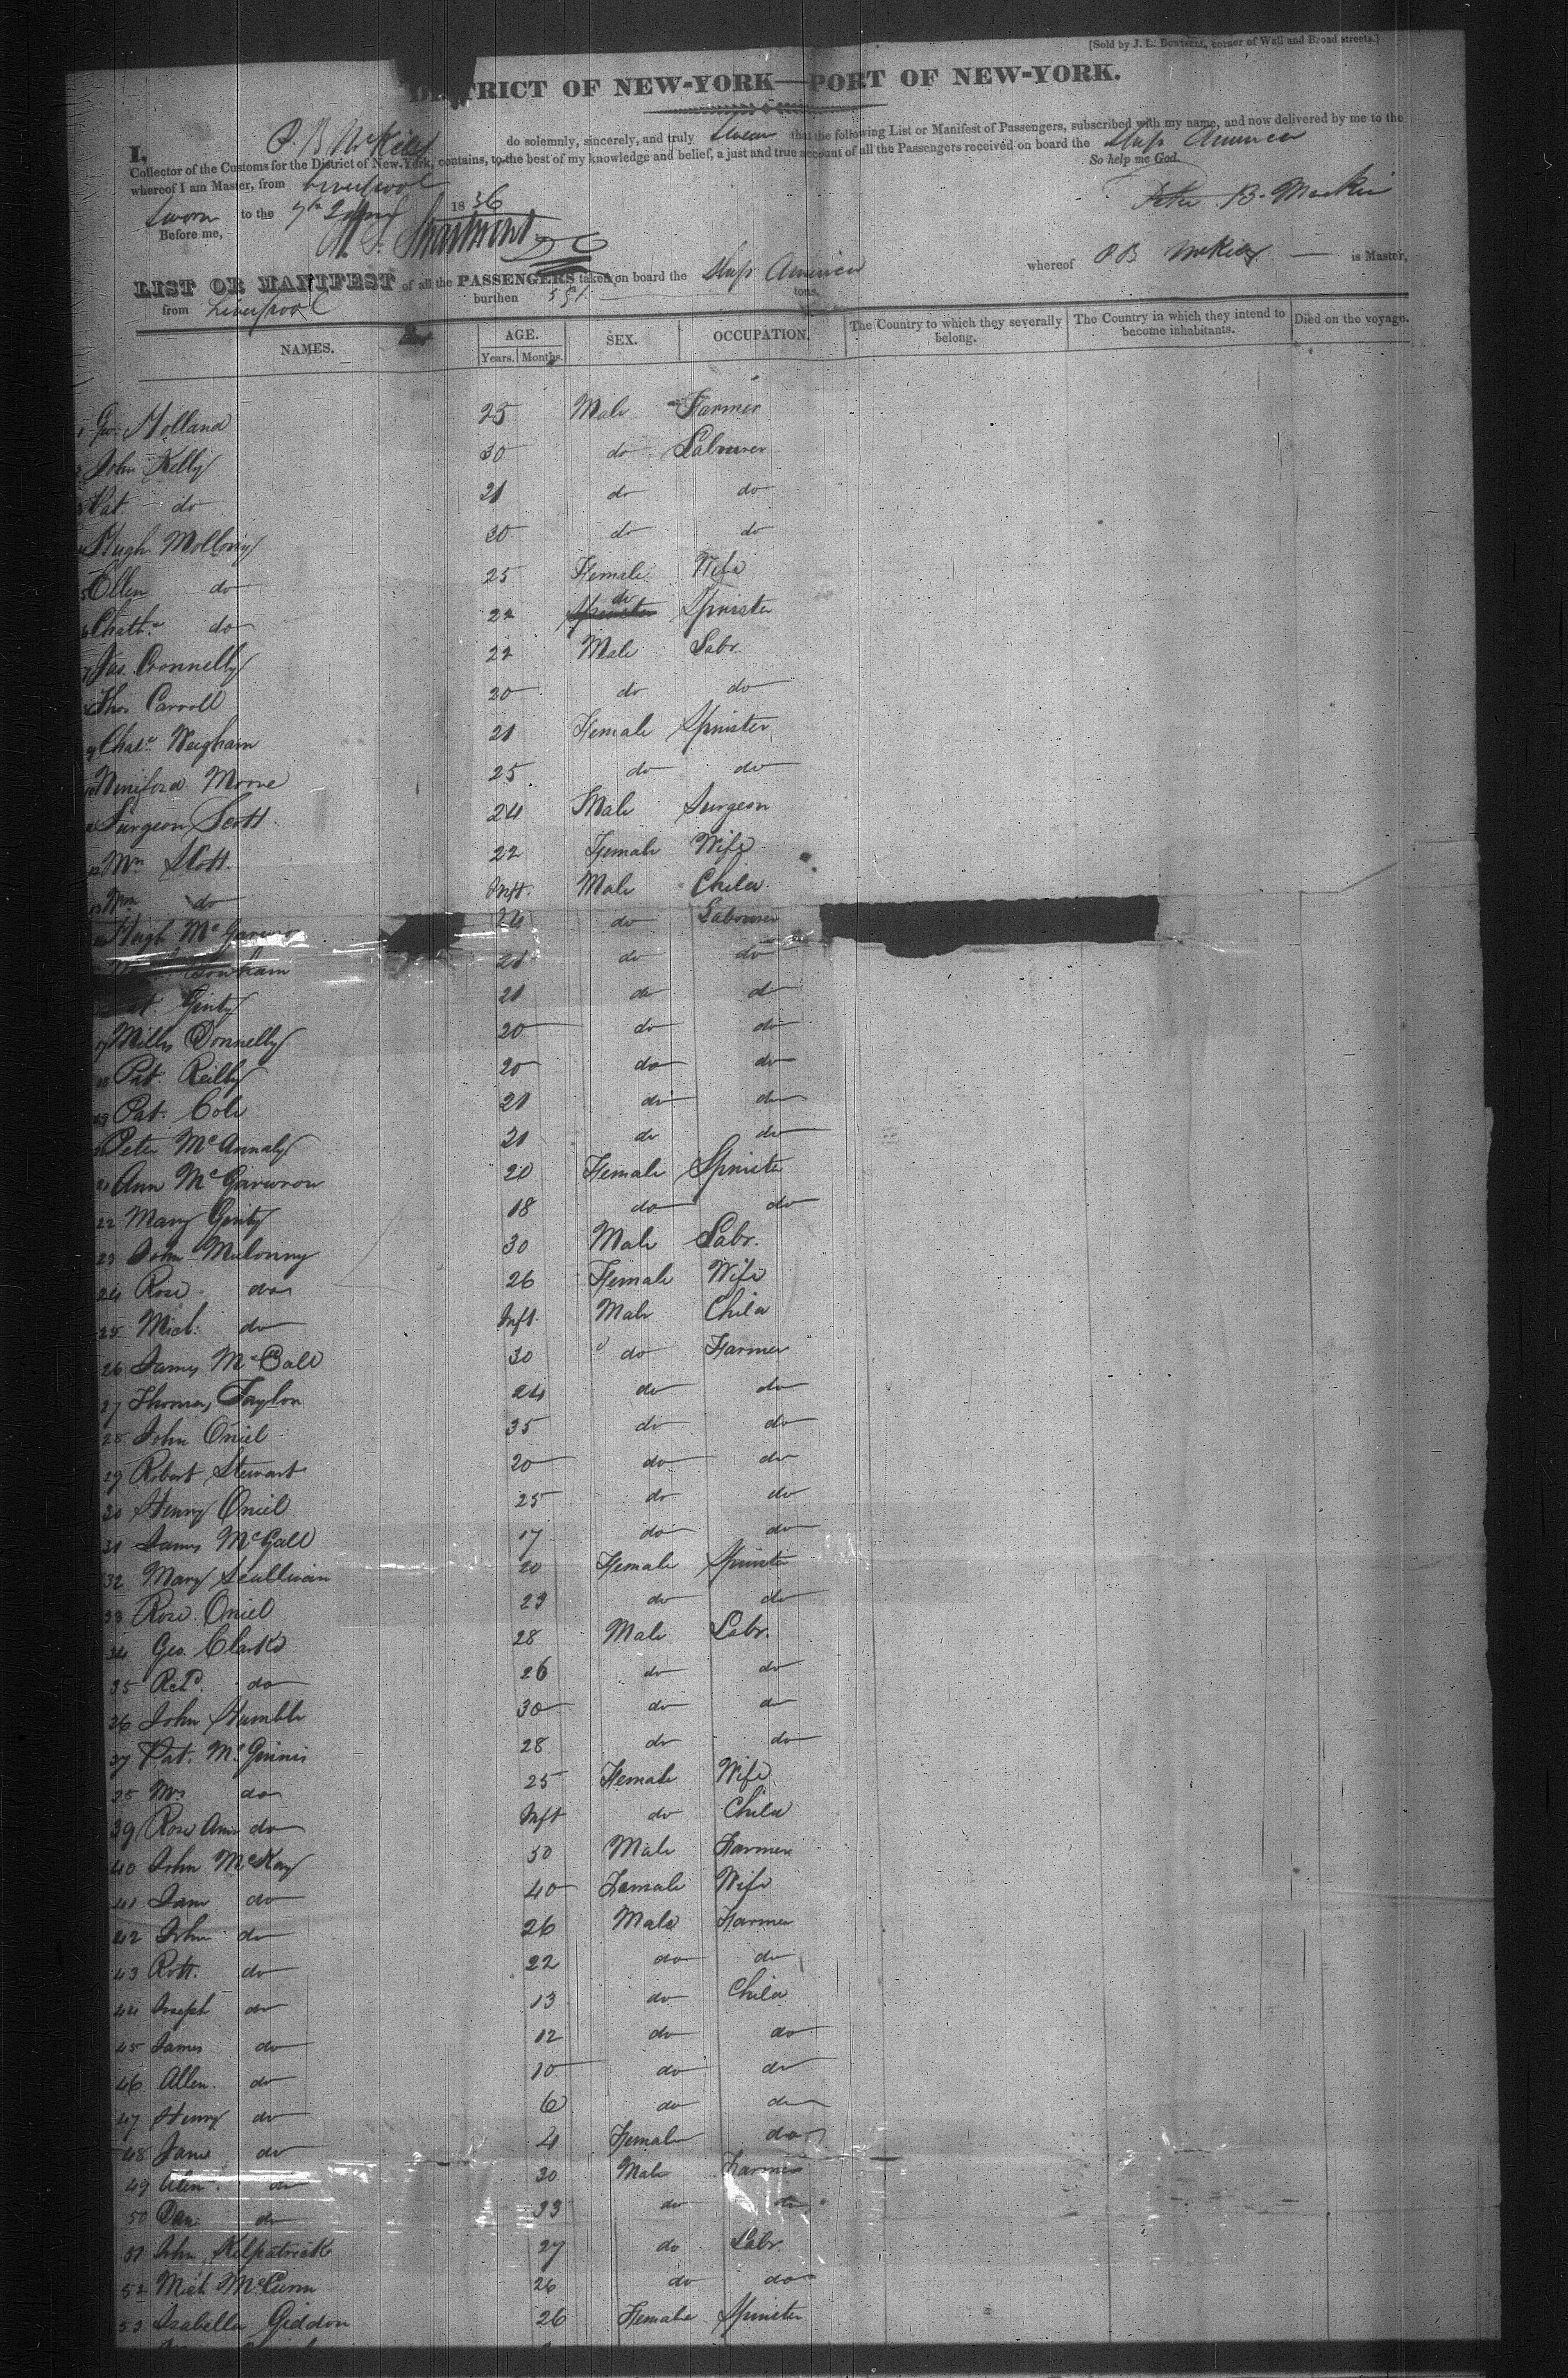 [Sold by J. L. BONSALL, corner of Wall and Broad streets.]
DISTRICT OF NEW-YORK—PORT OF NEW-YORK.
I, P. B McKeig do solemnly, sincerely, and truly Swear that the following List or Manifest of Passengers, subscribed with my name, and now delivered by me to the
Collector of the Customs for the District of New-York, contains, to the best of my knowledge and belief, a just and true account of all the Passengers received on board the Ship America
whereof I am Master, from Liverpool So help me God.
Sworn to the 1836 Peter B. Mackie
Before me,
LIST OR MANIFEST of all the PASSENGERS taken on board the Ship America whereof P B McKeig is Master,
from Liverpool burthen 591 tons,
NAMES. AGE. Years. Months. SEX. OCCUPATION. The Country to which they severally belong. The Country in which they intend to become inhabitants. Died on the voyage.
1 Geo: Holland 25 Male Farmer
2 John Kelly 30 do Labourer
3 Pat do 21 do do
4 Hugh Mollowy 30 do do
5 Ellen do 25 Female Wife
6 Cathe do 22 do Spinster
7 Jas. Connelly 22 Male Labr.
8 Thos Carroll 20 do do
9 21 Female Spinster
10 Winiford Moore 25 do do
11 Surgeon Scott 24 Male Surgeon
12 Mrs Scott. 22 Female Wife
13 Wm do Inft. Male Child
14 Hugh McGarwron 24 do Labourer
21 do do
16 Pat. Ginty 21 do do
17 Miles Donnelly 20 do do
18 Pat. Reilly 20 do do
19 Pat. Cole 21 do do
20 Peter McAnnaly 21 do do
21 Ann McGarwron 20 Female Spinster
22 Mary Ginty 18 do do
23 John Mulonny 30 Male Labr.
24 Rose do 26 Female Wife
25 Mich: do Inft. Male Child
26 James McCall 30 do Farmer
27 Thomas Taylor 24 do do
28 John Oniel 35 do do
29 Robert Stewart 20 do do
30 Henry Oniel 25 do do
31 James McCall 17 do do
32 Mary Scullivan 20 Female Spinster
33 Rose Oniel 23 do do
34 Geo. Clarke 28 Male Labr.
35 Rchd. do 26 do do
36 John Humble 30 do do
37 Pat. McGinnis 28 do do
38 Mrs do 25 Female Wife
39 Rose Ann do Inft do Child
40 John McKay 50 Male Farmer
41 Jane do 40 Female Wife
42 John do 26 Male Farmer
43 Robt. do 22 do do
44 Joseph do 13 do Child
45 James do 12 do do
46 Allen do 10 do do
47 Henry do 6 do do
48 Jane do 4 Female do
49 Alen do 30 Male Farmer
50 Dan do 33 do do
51 John Kilpatrick 27 do Labr.
52 Mich McCunn 26 do do
53 Isabella Giddon 26 Female Spinster